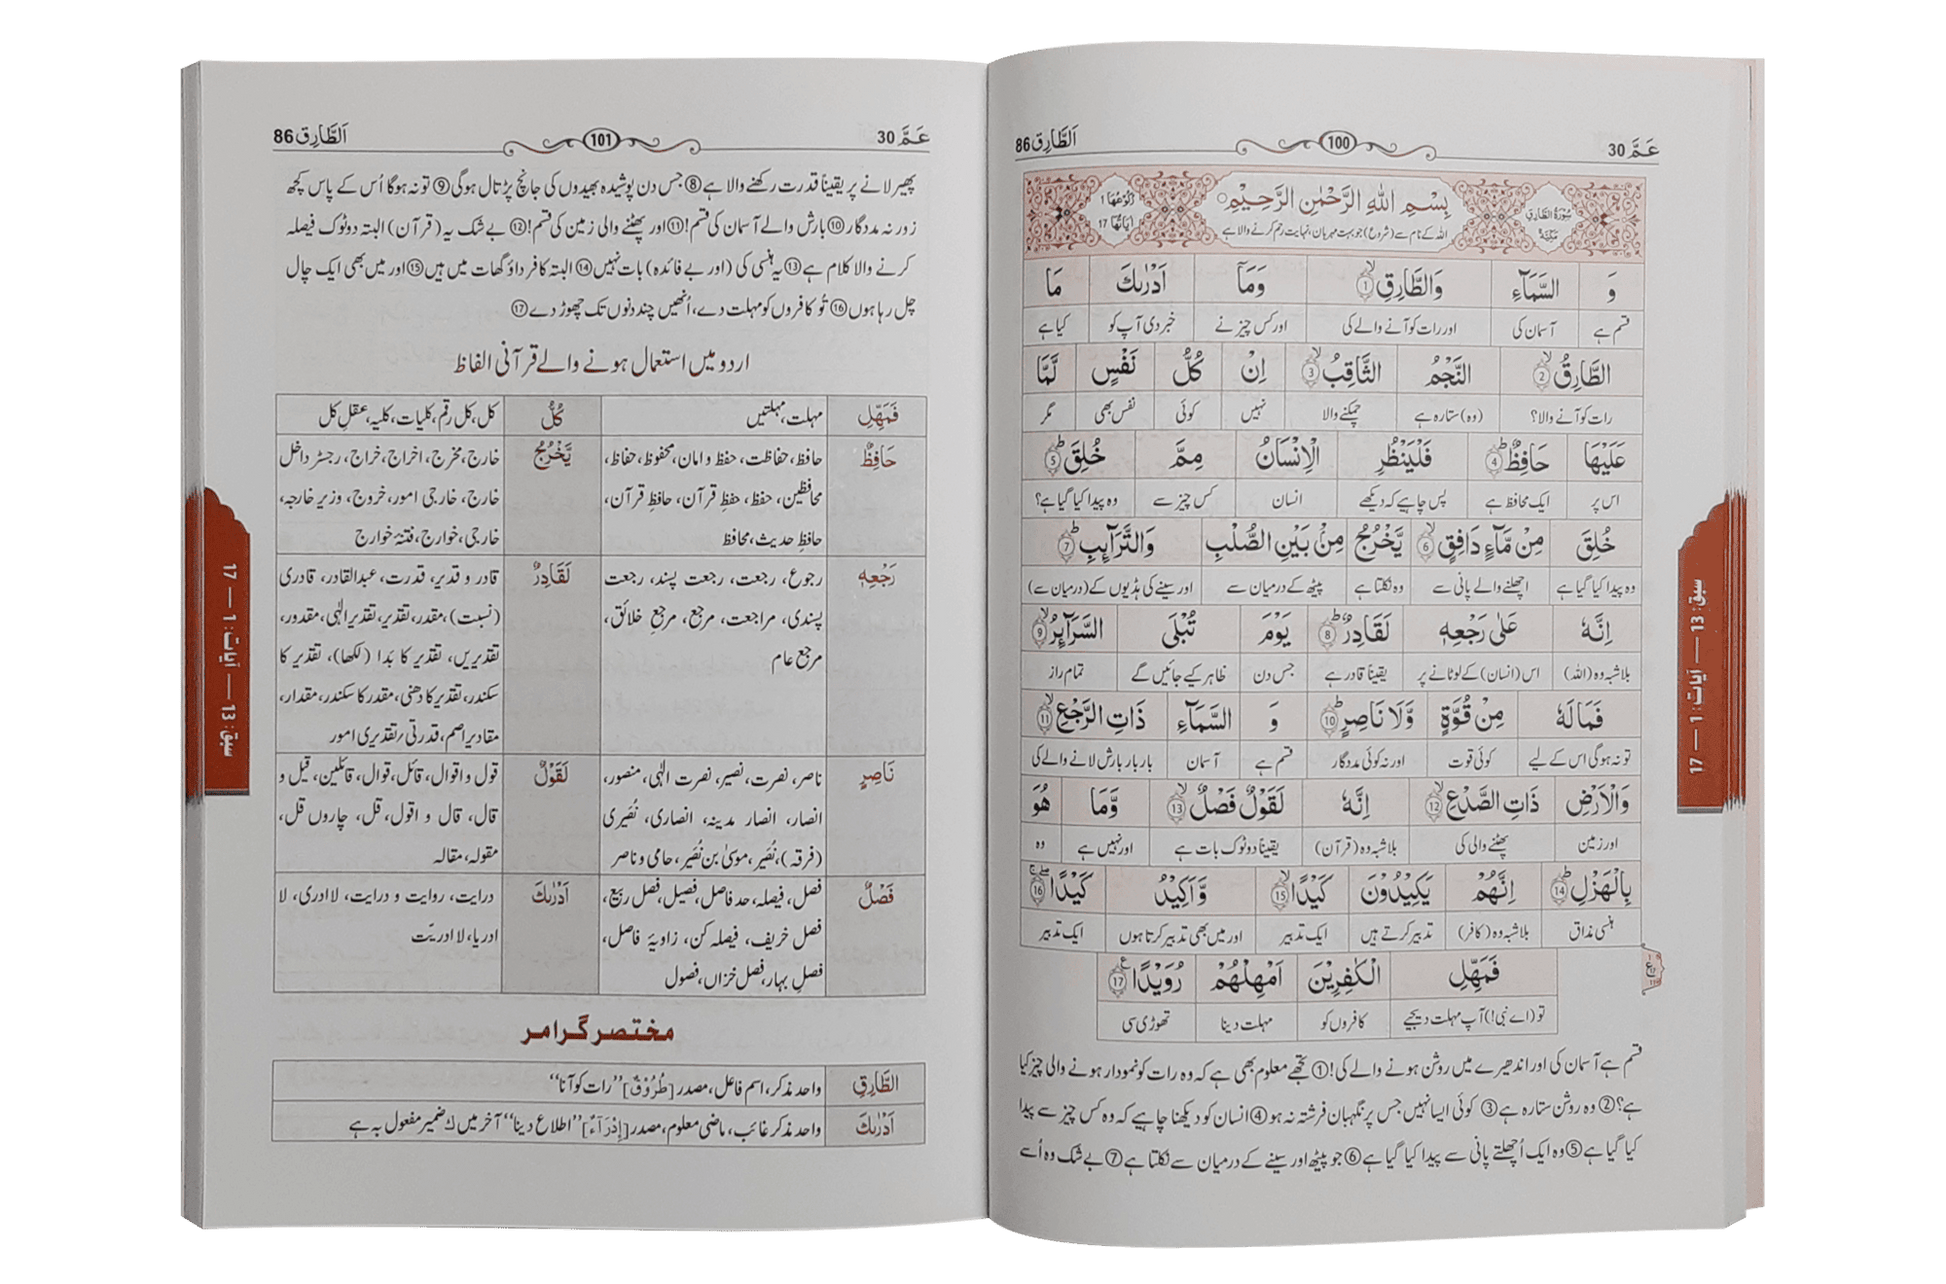 عَمَّ 30
100
اَلطَّارِق 86
سُوْرَةُ الطَّارِقِ مَكِّيَّةٌ
بِسْمِ اللّٰهِ الرَّحْمٰنِ الرَّحِيْمِ
رُكُوْعُهَا 1
اٰيَاتُهَا 17
اللہ کے نام سے (شروع) جو بہت مہربان، نہایت رحم کرنے والا ہے
وَ السَّمَآءِ وَالطَّارِقِ ۙ① وَمَآ اَدْرٰىكَ مَا
قسم ہے آسمان کی اور رات کو آنے والے کی اور کس چیز نے خبر دی آپ کو کیا ہے
الطَّارِقُ ۙ② النَّجْمُ الثَّاقِبُ ۙ③ اِنْ كُلُّ نَفْسٍ لَّمَّا
رات کو آنے والا؟ (وہ) ستارہ ہے چمکنے والا نہیں کوئی نفس بھی مگر
عَلَيْهَا حَافِظٌ ؕ④ فَلْيَنْظُرِ الْاِنْسَانُ مِمَّ خُلِقَ ؕ⑤
اس پر ایک محافظ ہے پس چاہیے کہ دیکھے انسان کس چیز سے وہ پیدا کیا گیا ہے؟
خُلِقَ مِنْ مَّآءٍ دَافِقٍ ۙ⑥ يَّخْرُجُ مِنْۢ بَيْنِ الصُّلْبِ وَالتَّرَآئِبِ ؕ⑦
وہ پیدا کیا گیا ہے اچھلنے والے پانی سے وہ نکلتا ہے پیٹھ کے درمیان سے اور سینے کی ہڈیوں کے (درمیان سے)
اِنَّهٗ عَلٰى رَجْعِهٖ لَقَادِرٌ ؕ⑧ يَوْمَ تُبْلَى السَّرَآئِرُ ۙ⑨
بلاشبہ وہ (اللہ) اس (انسان) کے لوٹانے پر یقیناً قادر ہے جس دن ظاہر کیے جائیں گے تمام راز
فَمَا لَهٗ مِنْ قُوَّةٍ وَّلَا نَاصِرٍ ؕ⑩ وَ السَّمَآءِ ذَاتِ الرَّجْعِ ۙ⑪
تو نہ ہوگی اس کے لیے کوئی قوت اور نہ کوئی مددگار قسم ہے آسمان بار بار بارش لانے والے کی
وَالْاَرْضِ ذَاتِ الصَّدْعِ ۙ⑫ اِنَّهٗ لَقَوْلٌ فَصْلٌ ۙ⑬ وَّمَا هُوَ
اور زمین پھٹنے والی کی بلاشبہ وہ (قرآن) یقیناً دو ٹوک بات ہے اور نہیں ہے وہ
بِالْهَزْلِ ؕ⑭ اِنَّهُمْ يَكِيْدُوْنَ كَيْدًا ۙ⑮ وَّاَكِيْدُ كَيْدًا ۚ⑯
ہنسی مذاق بلاشبہ وہ (کافر) تدبیر کرتے ہیں ایک تدبیر اور میں بھی تدبیر کرتا ہوں ایک تدبیر
فَمَهِّلِ الْكٰفِرِيْنَ اَمْهِلْهُمْ رُوَيْدًا ⑰
تو (اے نبی!) آپ مہلت دیجیے کافروں کو مہلت دینا تھوڑی سی
قسم ہے آسمان کی اور اندھیرے میں روشن ہونے والے کی!① تجھے معلوم بھی ہے کہ وہ رات کو نمودار ہونے والی چیز کیا
ہے؟② وہ روشن ستارہ ہے③ کوئی ایسا نہیں جس پر نگہبان فرشتہ نہ ہو④ انسان کو دیکھنا چاہیے کہ وہ کس چیز سے پیدا
کیا گیا ہے⑤ وہ ایک اُچھلتے پانی سے پیدا کیا گیا ہے⑥ جو پیٹھ اور سینے کے درمیان سے نکلتا ہے⑦ بے شک وہ اُسے
سبق: 13 — آیات: 1 — 17
عَمَّ 30
101
اَلطَّارِق 86
پھیر لانے پر یقیناً قدرت رکھنے والا ہے⑧ جس دن پوشیدہ بھیدوں کی جانچ پڑتال ہوگی⑨ تو نہ ہوگا اُس کے پاس کچھ
زور نہ مددگار⑩ بارش والے آسمان کی قسم!⑪ اور پھٹنے والی زمین کی قسم!⑫ بے شک یہ (قرآن) البتہ دوٹوک فیصلہ
کرنے والا کلام ہے⑬ یہ ہنسی کی (اور بے فائدہ) بات نہیں⑭ البتہ کافر داؤ گھات میں ہیں⑮ اور میں بھی ایک چال
چل رہا ہوں⑯ تُو کافروں کو مہلت دے، اُنھیں چند دنوں تک چھوڑ دے⑰
اردو میں استعمال ہونے والے قرآنی الفاظ
فَمَهِّلِ مہلت، مہلتیں
كُلُّ کل، کل رقم، کلیات، کلیہ، عقلِ کل
حَافِظٌ حافظ، حفاظت، حفظ و امان، محفوظ، حفاظ،
محافظین، حفظ، حفظِ قرآن، حافظِ قرآن،
حافظِ حدیث، محافظ
يَّخْرُجُ خارج، مخرج، اخراج، خراج، رجسٹر داخل
خارج، خارجی امور، خروج، وزیر خارجہ،
خارجی، خوارج، فتنۂ خوارج
رَجْعِهٖ رجوع، رجعت، رجعت پسند، رجعت
پسندی، مراجعت، مرجع، مرجع خلائق،
مرجع عام
لَقَادِرٌ قادر و قدیر، قدرت، عبدالقادر، قادری
(نسبت)، مقدر، تقدیر، تقدیرِ الٰہی، مقدور،
تقدیریں، تقدیر کا بدا (لکھا)، تقدیر کا
سکندر، تقدیر کا دھنی، مقدر کا سکندر، مقدار،
مقادیر اصم، قدرتی/ تقدیری امور
نَاصِرٍ ناصر، نصرت، نصیر، نصرت الٰہی، منصور،
انصار، انصار مدینہ، انصاری، نُصَیری
(فرقہ)، نُصَیر، موسیٰ بن نُصَیر، حامی و ناصر
لَقَوْلٌ قول و اقوال، قائل، قوال، قائلین، قیل و
قال، قال و اقول، قل، چاروں قل،
مقولہ، مقالہ
فَصْلٌ فصل، فیصلہ، حد فاصل، فصیل، فصل ربیع،
فصل خریف، فیصلہ کن، زاویۂ فاصل،
فصلِ بہار، فصل خزاں، فصول
اَدْرٰىكَ درایت، روایت و درایت، لاادری، لا
ادریا، لا ادریّت
مختصر گرامر
الطَّارِقِ واحد مذکر، اسم فاعل، مصدر [طُرُوْقٌ] ’’رات کو آنا‘‘
اَدْرٰىكَ واحد مذکر غائب، ماضی معلوم، مصدر [اِدْرَآءٌ] ’’اطلاع دینا‘‘ آخر میں ك ضمیر مفعول بہ ہے
سبق: 13 — آیات: 1 — 17